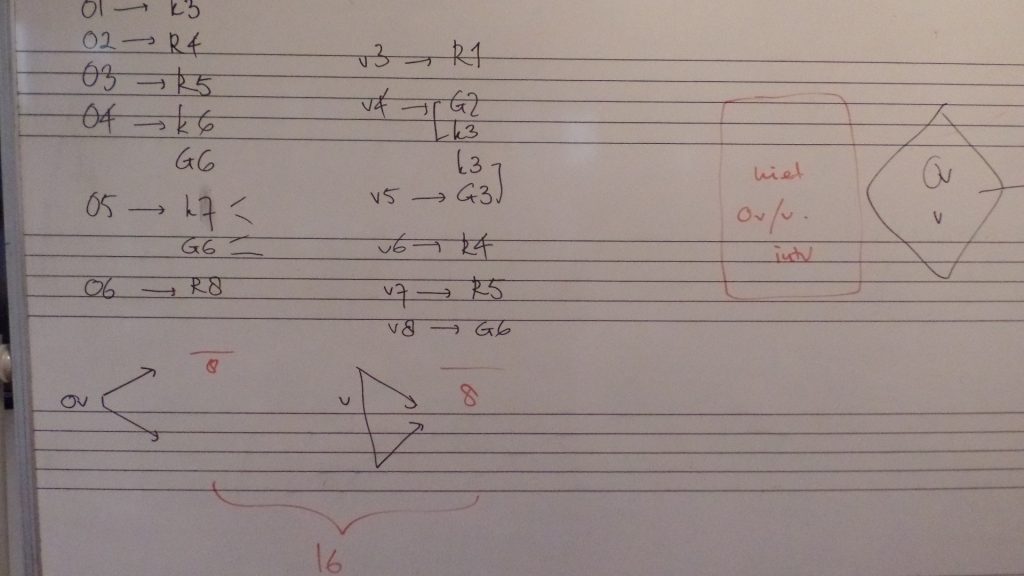 O1 → k3
O2 → R4
O3 → k5
O4 → k6
G6
O5 → k7
G6
O6 → R8
8
v3 → R1
v4 → G2
k3
k3
v5 → G3
v6 → R4
v7 → R5
v8 → G6
8
Ov
v
16
Ov/v.
intv
Ov
v